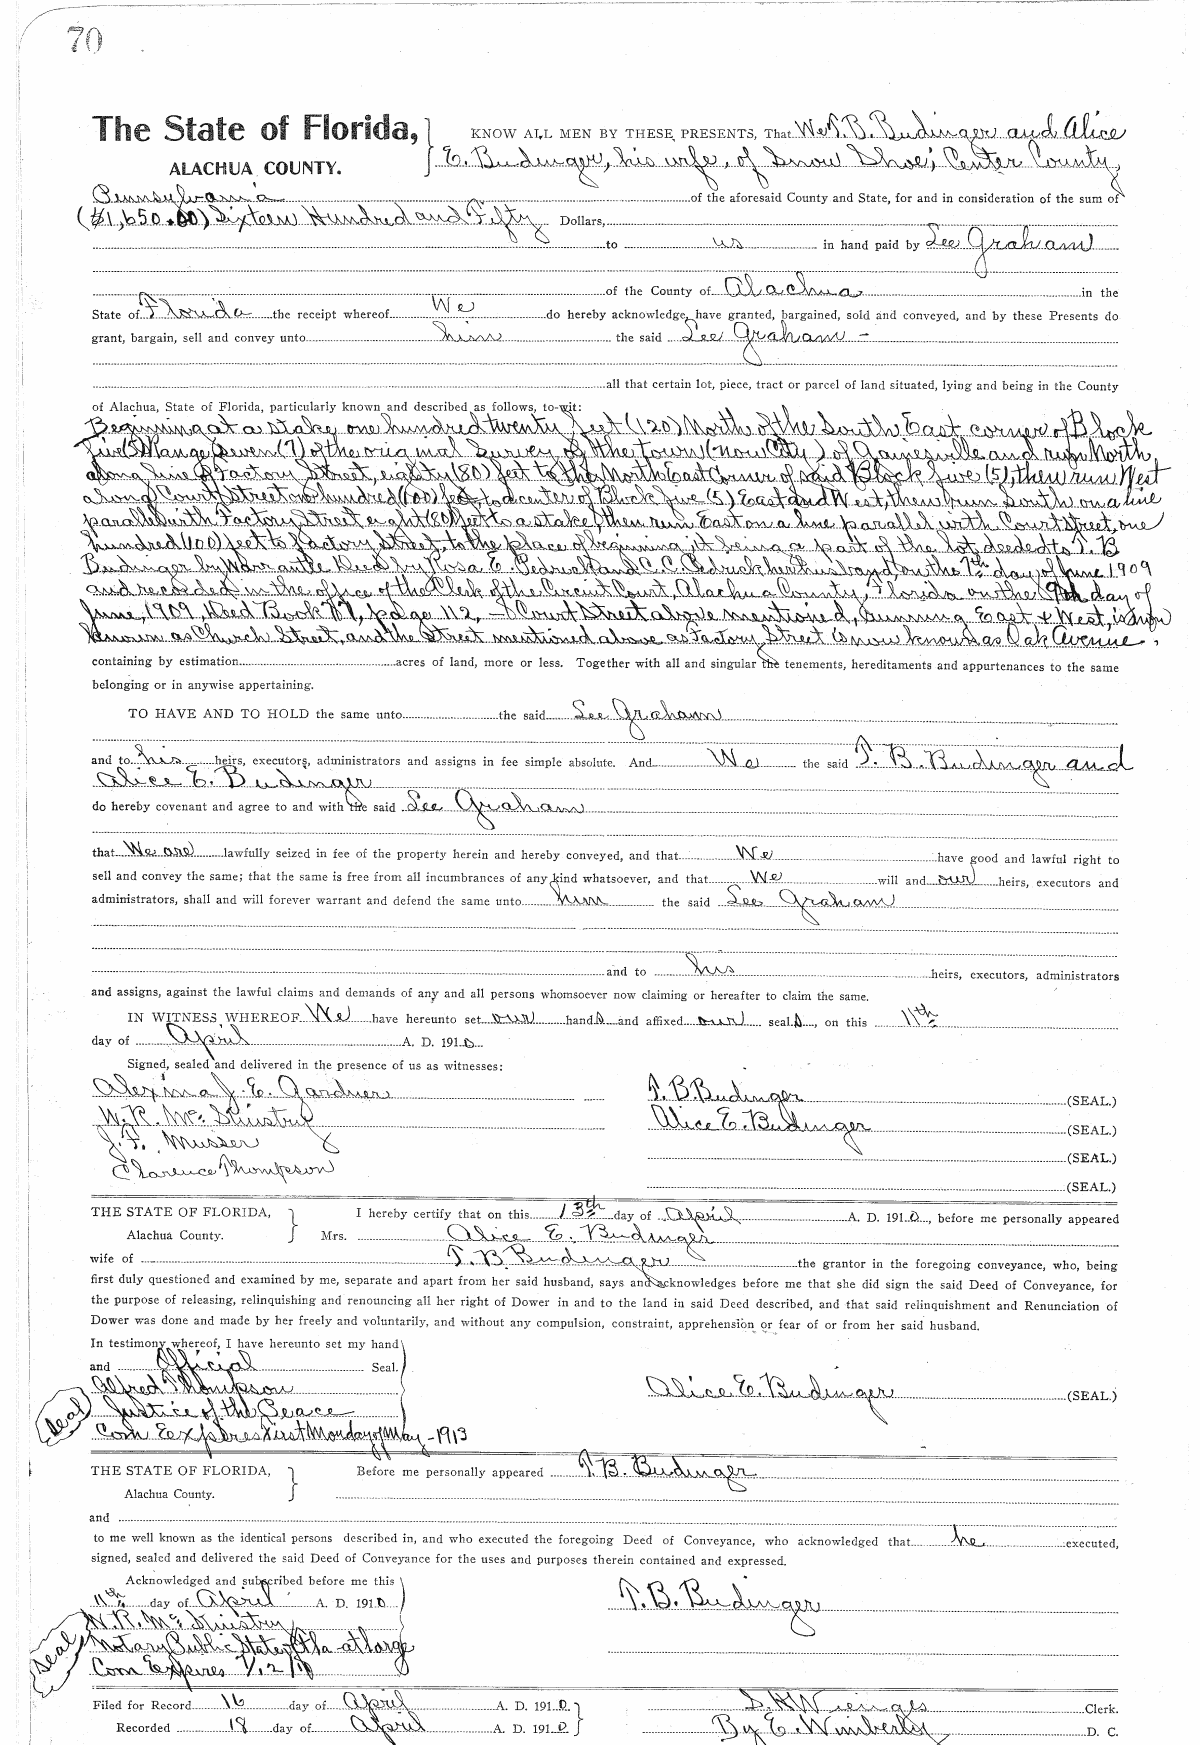 70
The State of Florida,
ALACHUA COUNTY.
KNOW ALL MEN BY THESE PRESENTS, That We T. B. Budinger and Alice
E. Budinger, his wife, of Snow Shoe, Center County,
Pennsylvania of the aforesaid County and State, for and in consideration of the sum of
($1,650.00) Sixteen Hundred and Fifty Dollars,
to us in hand paid by Lee Graham
of the County of Alachua in the
State of Florida the receipt whereof We do hereby acknowledge, have granted, bargained, sold and conveyed, and by these Presents do
grant, bargain, sell and convey unto him the said Lee Graham -
all that certain lot, piece, tract or parcel of land situated, lying and being in the County
of Alachua, State of Florida, particularly known and described as follows, to-wit:
Beginning at a stake one hundred twenty feet (120) North of the South East corner of Block
Five (5) Range Seven (7) of the original Survey of the town (now City) of Gainesville and run North,
along line of Factory Street, eighty (80) feet to the North East Corner of said Block five (5), then run West
along Court Street one hundred (100) feet, to a center of Block five (5) East and West, then run South on a line
parallel with Factory Street eighty (80) feet to a stake, then run East on a line parallel with Court Street, one
hundred (100) feet to Factory Street, to the place of beginning, it being a part of the lot deeded to T. B
Budinger by Warrantee Deed by Rosa E. Pedrick and C. C. Pedrick her husband, on the 7th day of June 1909
and recorded in the office of the Clerk of the Circuit Court, Alachua County, Florida on the 9th day of
June, 1909, Deed Book 71, page 112, - Court Street above mentioned, running East & West, is now
known as Church Street, and the Street mentioned above as Factory Street is now known as Oak Avenue.
containing by estimation acres of land, more or less. Together with all and singular the tenements, hereditaments and appurtenances to the same
belonging or in anywise appertaining.
TO HAVE AND TO HOLD the same unto the said Lee Graham
and to his heirs, executors, administrators and assigns in fee simple absolute. And We the said T. B. Budinger and
Alice E. Budinger
do hereby covenant and agree to and with the said Lee Graham
that We are lawfully seized in fee of the property herein and hereby conveyed, and that We have good and lawful right to
sell and convey the same; that the same is free from all incumbrances of any kind whatsoever, and that We will and our heirs, executors and
administrators, shall and will forever warrant and defend the same unto him the said Lee Graham
and to his heirs, executors, administrators
and assigns, against the lawful claims and demands of any and all persons whomsoever now claiming or hereafter to claim the same.
IN WITNESS WHEREOF We have hereunto set our hands and affixed our seals, on this 11th
day of April A. D. 1910
Signed, sealed and delivered in the presence of us as witnesses:
Alexina J. E. Gardner T. B. Budinger (SEAL.)
W. R. McKinstry Alice E. Budinger (SEAL.)
J. F. Musser (SEAL.)
Clarence Thompson (SEAL.)
THE STATE OF FLORIDA,
Alachua County.
I hereby certify that on this 13th day of April A. D. 1910, before me personally appeared
Mrs. Alice E. Budinger
wife of T. B. Budinger the grantor in the foregoing conveyance, who, being
first duly questioned and examined by me, separate and apart from her said husband, says and acknowledges before me that she did sign the said Deed of Conveyance, for
the purpose of releasing, relinquishing and renouncing all her right of Dower in and to the land in said Deed described, and that said relinquishment and Renunciation of
Dower was done and made by her freely and voluntarily, and without any compulsion, constraint, apprehension or fear of or from her said husband.
In testimony whereof, I have hereunto set my hand
and Official Seal.
Alfred Thompson Alice E. Budinger (SEAL.)
Seal Justice of the Peace
Com Expires First Monday of May - 1913
THE STATE OF FLORIDA,
Alachua County.
Before me personally appeared T. B. Budinger
and
to me well known as the identical persons described in, and who executed the foregoing Deed of Conveyance, who acknowledged that he executed,
signed, sealed and delivered the said Deed of Conveyance for the uses and purposes therein contained and expressed.
Acknowledged and subscribed before me this
11th day of April A. D. 1910 T. B. Budinger
W. R. McKinstry
Seal Notary Public State of Fla - at large
Com Expires
Filed for Record 16 day of April A. D. 1910 S. H. Wienges Clerk.
Recorded 18 day of April A. D. 1910 By E. Wimberly D. C.